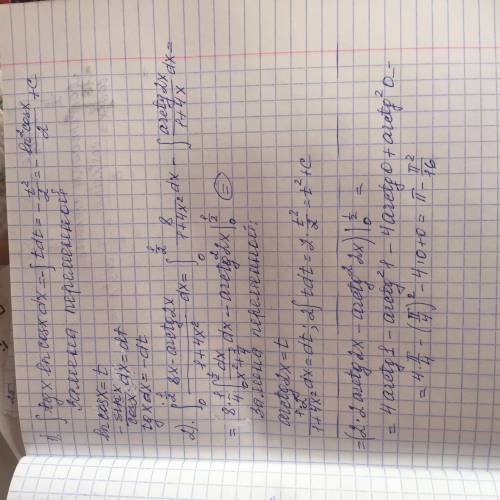 1) ∫ tgx ln cosx dx = -∫ t dt = -t²/2 = -ln² cosx/2 + C
Замена переменной
ln cosx = t
-sinx/cosx dx = dt
tgx dx = -dt
2) ∫₀^½ (8x - arctg 2x)/(1+4x²) dx = ∫₀^½ 8/(1+4x²) dx - ∫ arctg 2x/(1+4x) dx =
= 8·¼ ∫₀^½ dx/(x²+¼) dx - arctg 2x |₀^½ ⊜
Замена переменной:
arctg 2x = t
1·2/(1+4x²) dx = dt; 2∫ t dt = 2·t²/2 = t² + C
= (2·2 arctg 2x - arctg² 2x) |₀^½ =
= 4 arctg 1 - arctg² 1 - 4 arctg 0 + arctg² 0 =
= 4·π/4 - (π/4)² - 4·0 + 0 = π - π²/16